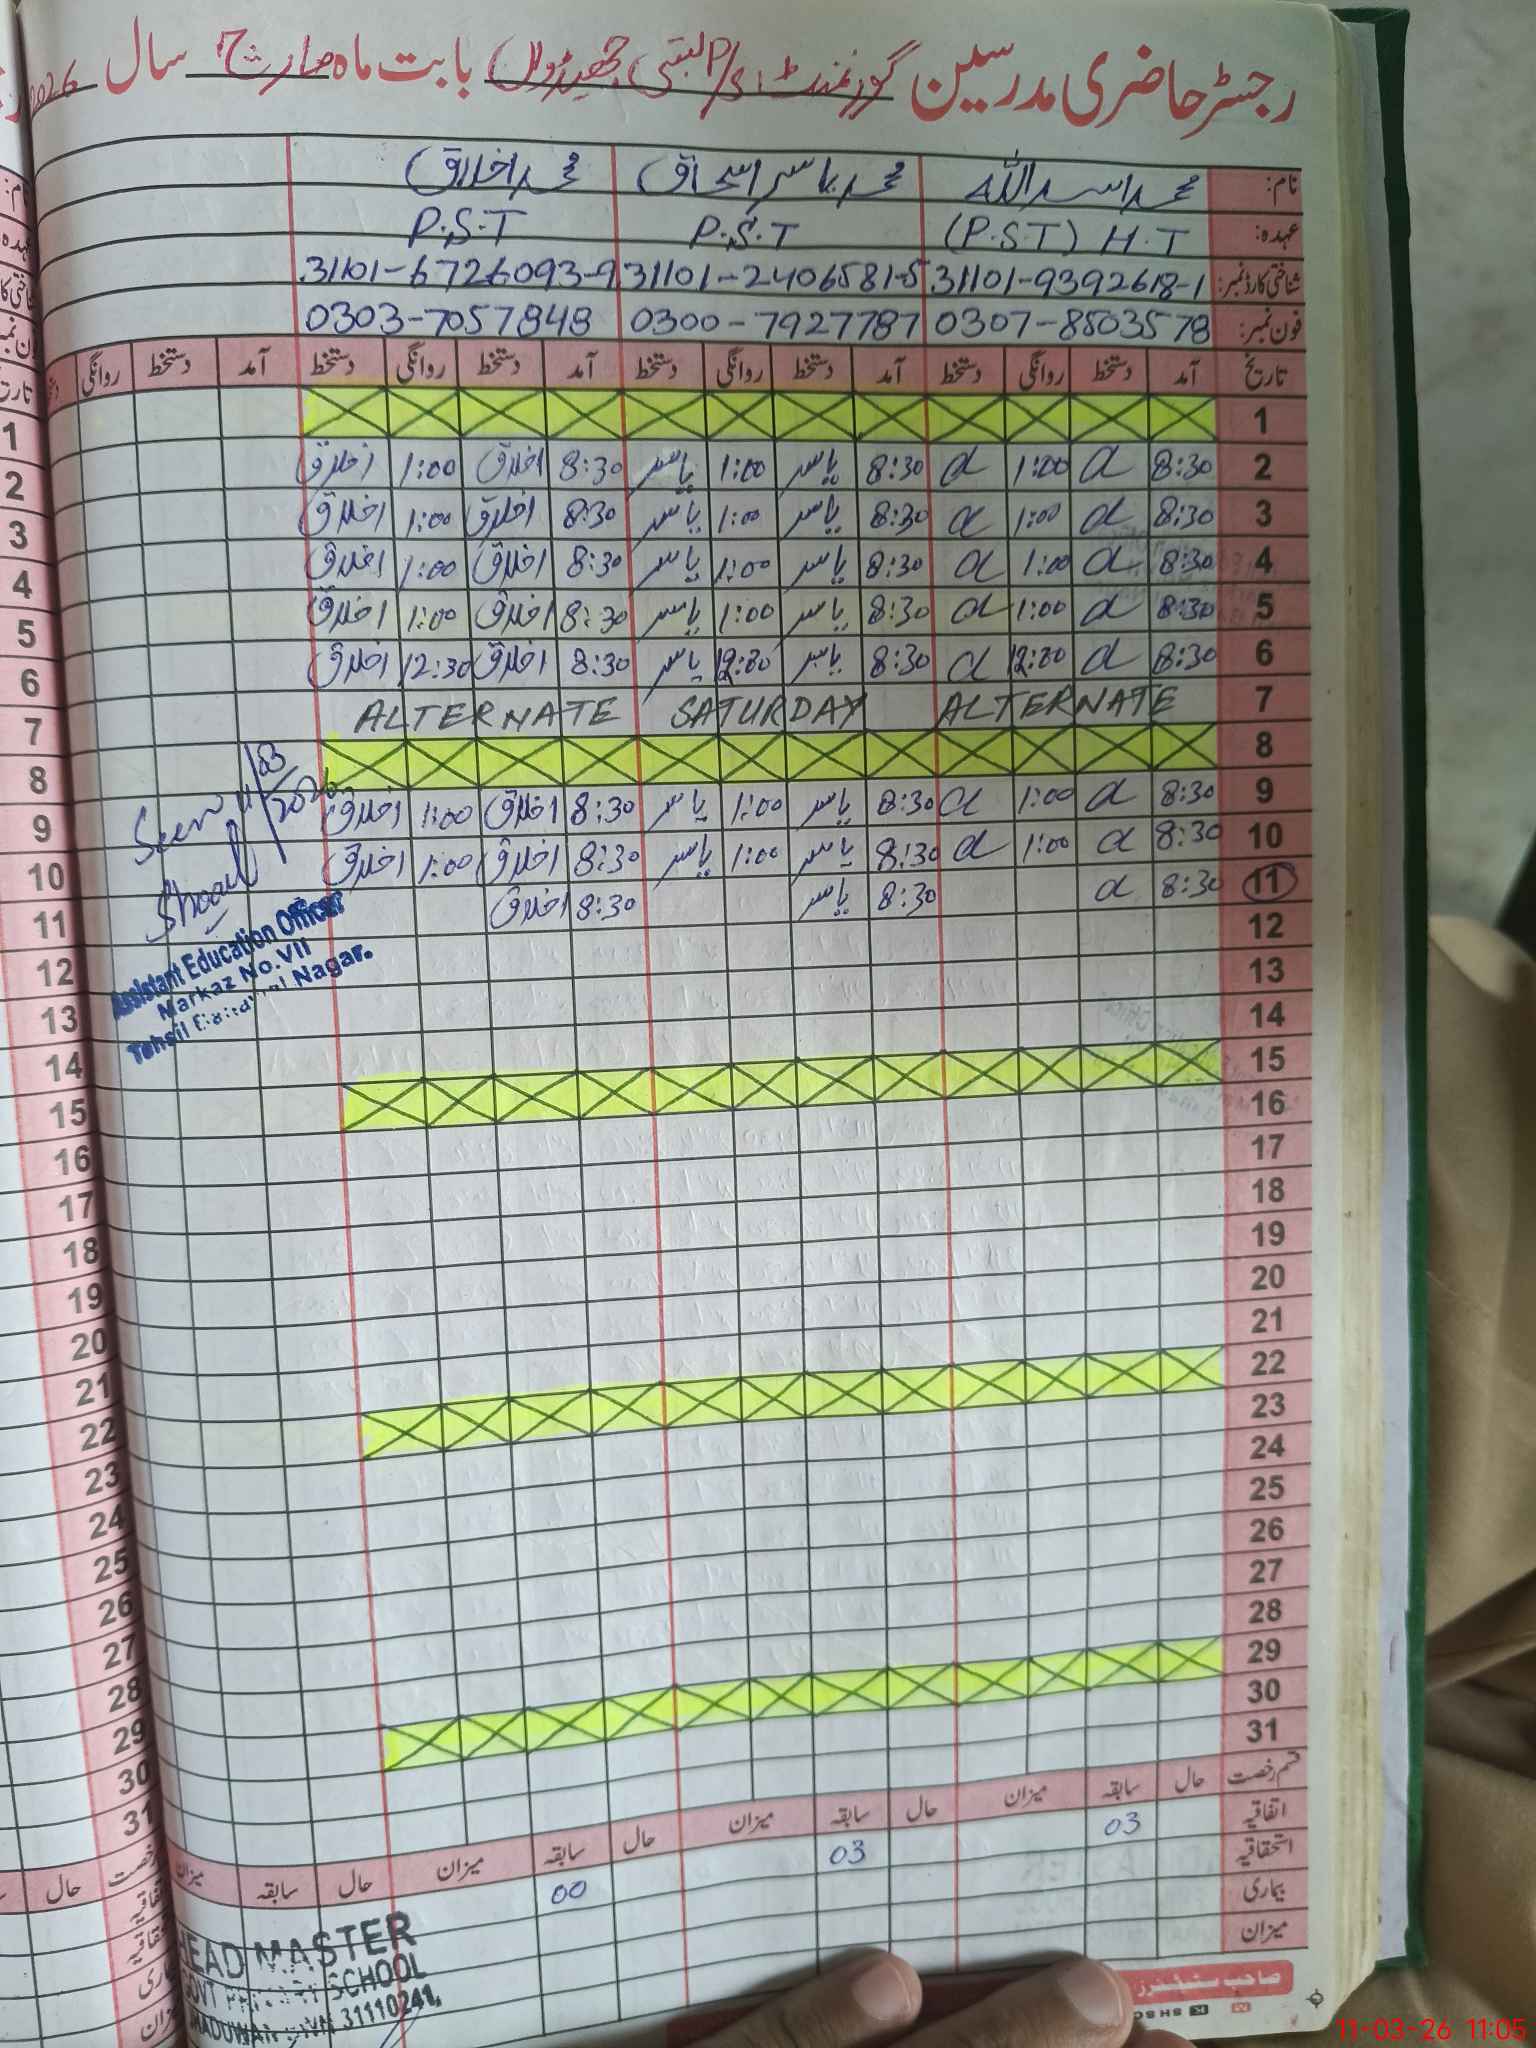 رجسٹر حاضری مدرسین گورنمنٹ P/S بستی بابت ماہ مارچ سال 2026
نام: محمد اسد اللہ محمد یاسر اسحاق محمد اخلاق
عہدہ: (P.S.T) H.T P.S.T P.S.T
شناختی کارڈ نمبر: 31101-9392618-1 31101-2406581-5 31101-6726093-9
فون نمبر: 0307-8503578 0300-7927787 0303-7057848
تاریخ آمد دستخط روانگی دستخط آمد دستخط روانگی دستخط آمد دستخط روانگی دستخط آمد دستخط روانگی
1
2 8:30 a 1:00 a 8:30 یاسر 1:00 یاسر 8:30 اخلاق 1:00 اخلاق
3 8:30 a 1:00 a 8:30 یاسر 1:00 یاسر 8:30 اخلاق 1:00 اخلاق
4 8:30 a 1:00 a 8:30 یاسر 1:00 یاسر 8:30 اخلاق 1:00 اخلاق
5 8:30 a 1:00 a 8:30 یاسر 1:00 یاسر 8:30 اخلاق 1:00 اخلاق
6 8:30 a 12:30 a 8:30 یاسر 12:30 یاسر 8:30 اخلاق 12:30 اخلاق
7 ALTERNATE SATURDAY ALTERNATE
8
9 8:30 a 1:00 a 8:30 یاسر 1:00 یاسر 8:30 اخلاق 1:00 اخلاق
10 8:30 a 1:00 a 8:30 یاسر 1:00 یاسر 8:30 اخلاق 1:00 اخلاق
11 8:30 a 8:30 یاسر 8:30 اخلاق
Seen 11/03/2026
Assistant Education Officer
Markaz No.VII
Tehsil Nagar.
12
13
14
15
16
17
18
19
20
21
22
23
24
25
26
27
28
29
30
31
قسم رخصت حال سابقہ میزان حال سابقہ میزان حال سابقہ میزان حال سابقہ میزان
اتفاقیہ 03 03 00
استحقاقیہ
بیماری
میزان
HEAD MASTER
GOVT PRIMARY SCHOOL
31110241,
صاحب سٹیشنرز
تاریخ
1
2
3
4
5
6
7
8
9
10
11
12
13
14
15
16
17
18
19
20
21
22
23
24
25
26
27
28
29
30
31
حال
11-03-26 11:05